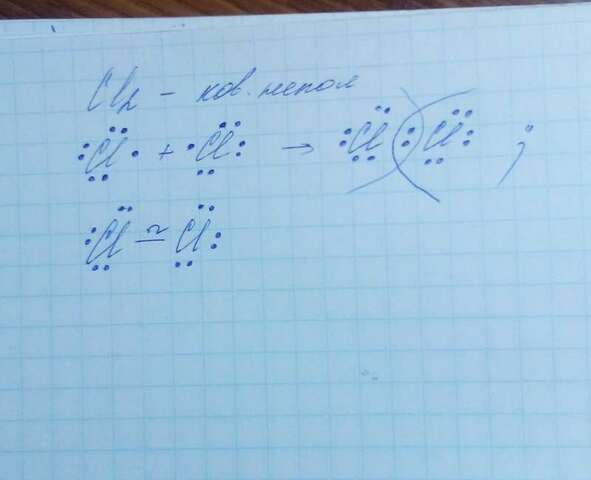 Cl₂ – ков. непол
:C̤̈l· + ·C̤̈l: → :C̤̈l:C̤̈l: ;
:C̤̈l – C̤̈l: